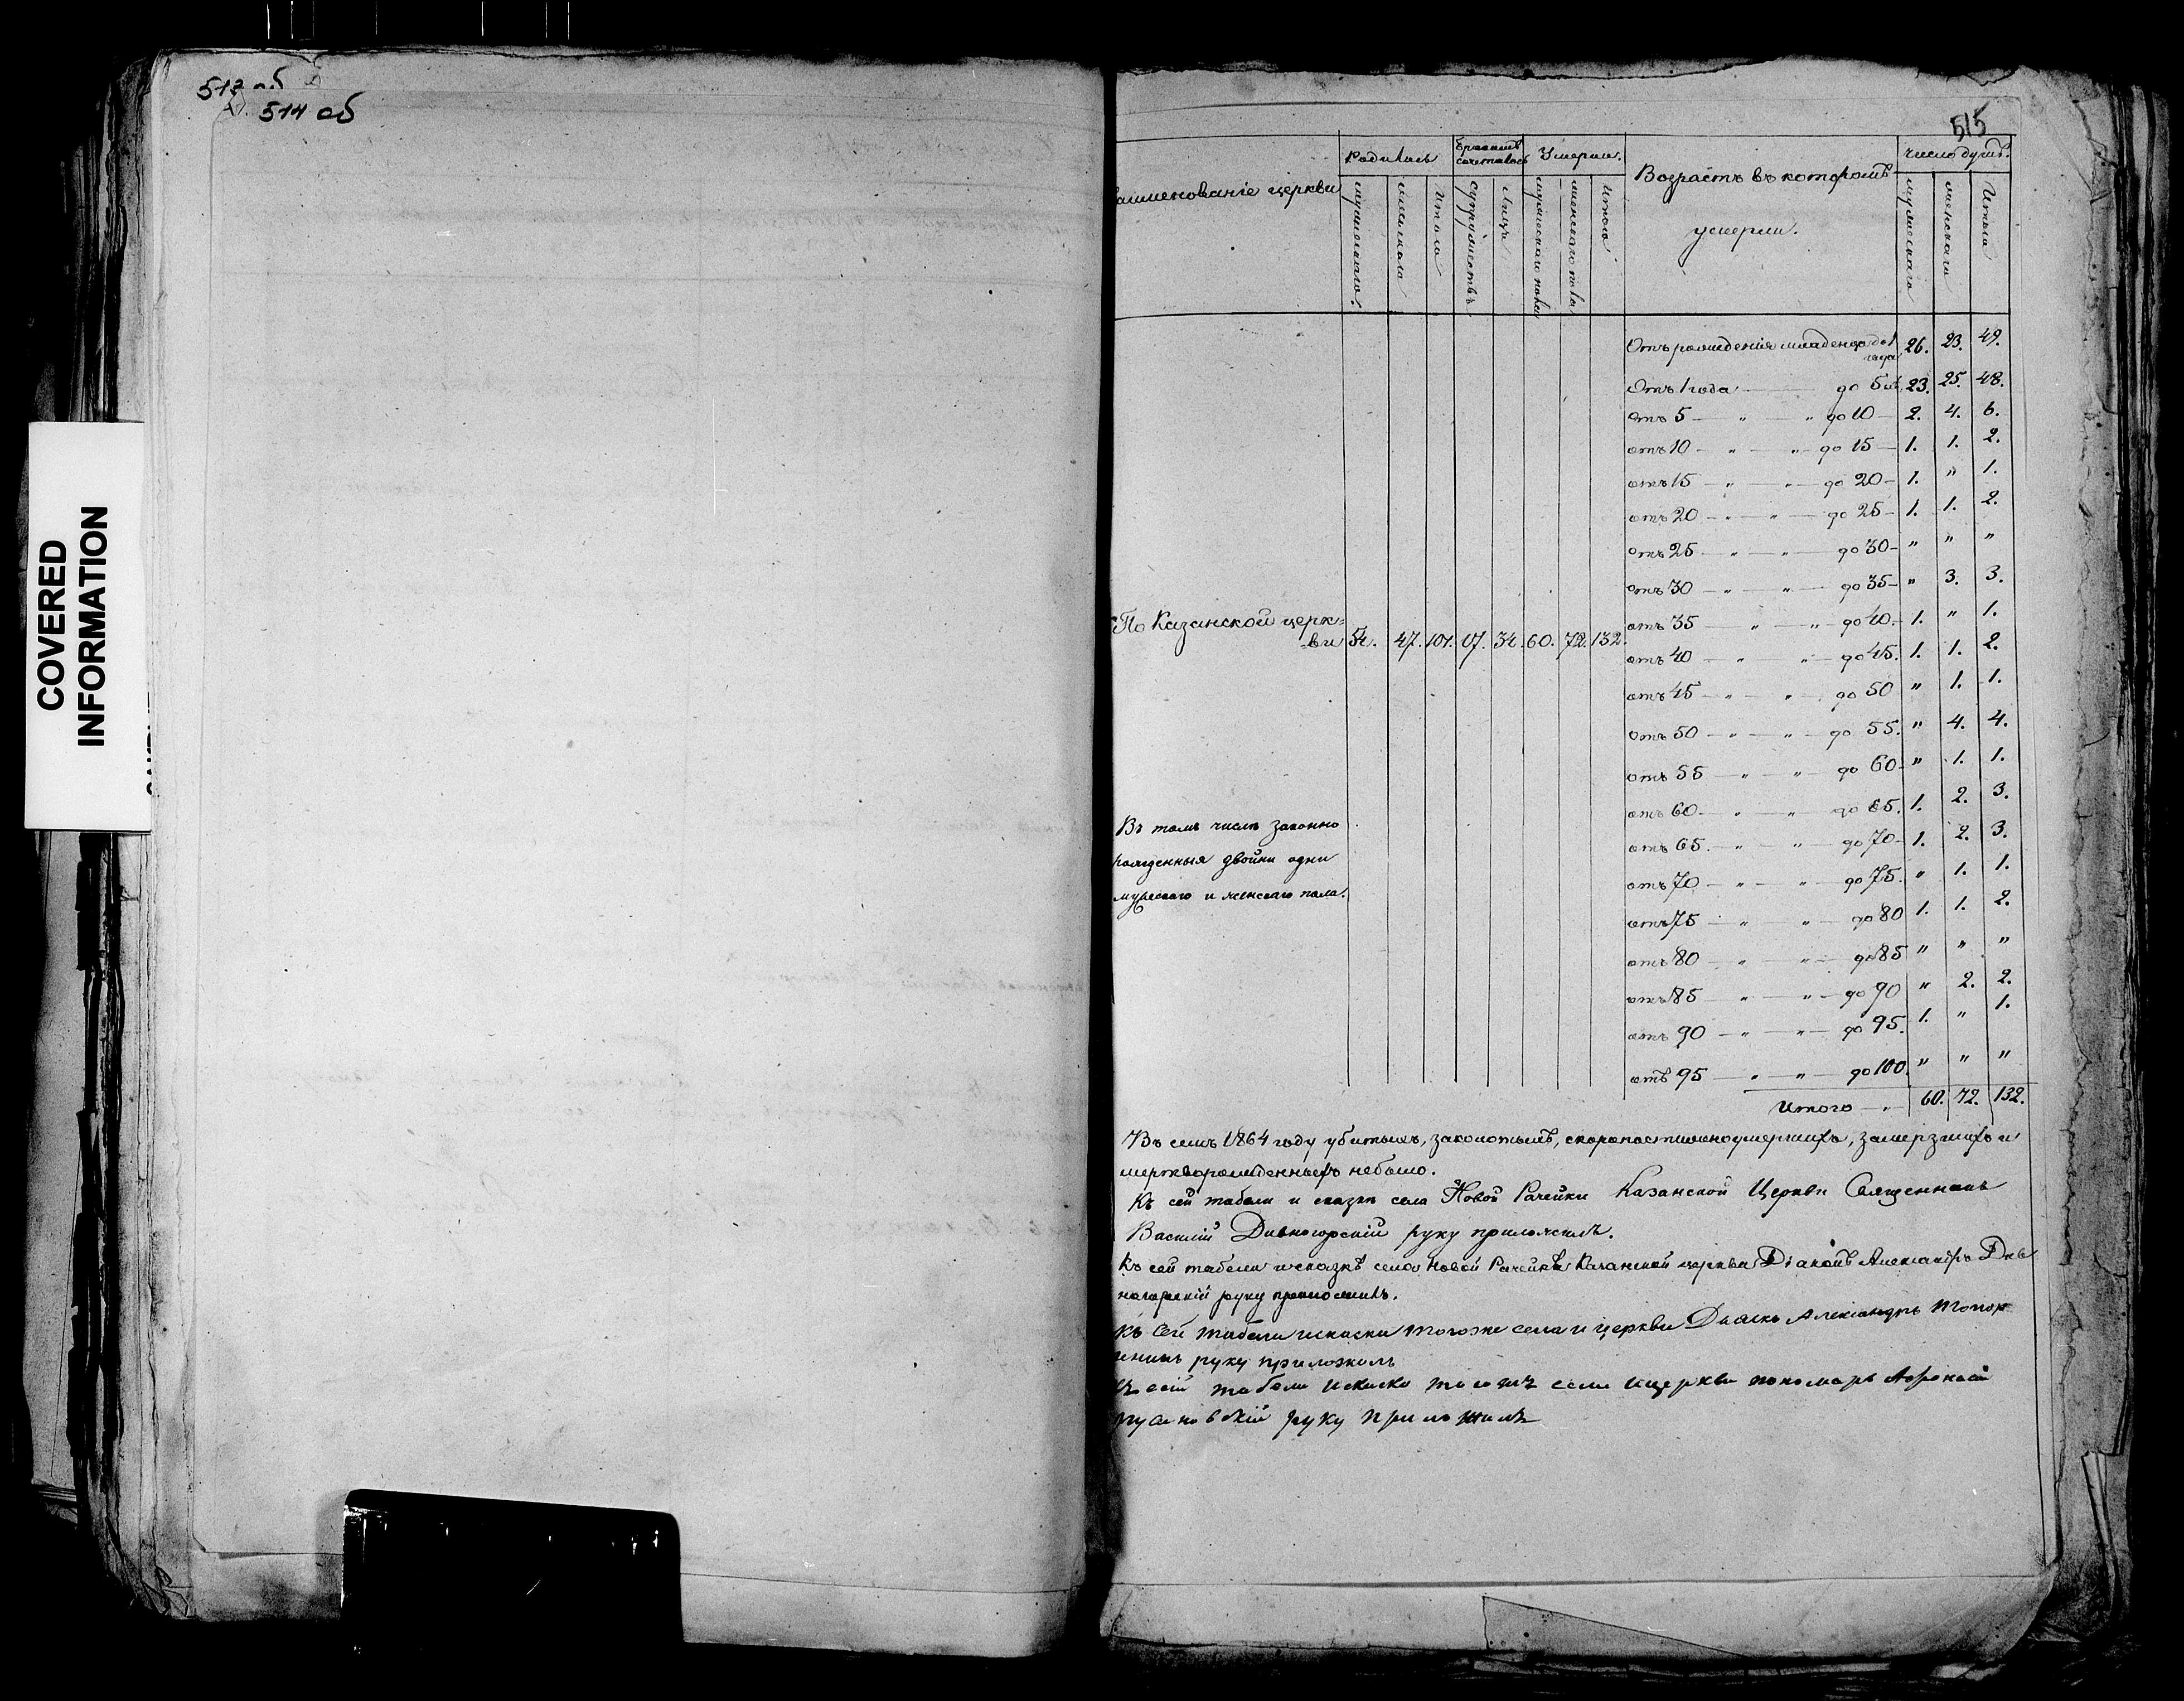 513 об
514 об
COVERED
INFORMATION
515
Наименованіе церкви
Родилось
Бракомъ сочеталось
Умерли.
Возрастъ въ которомъ
умерли.
Число душъ.
мужескаго.
женскаго
Итого
супружествъ
лицъ
мужескаго пола
женскаго пола
Итого
мужескаго
женскаго
Итого
Отъ рожденія младенцо до 1 года 26. 23. 49.
Отъ 1 года до 5 лѣ 23. 25. 48.
отъ 5 — " — " до 10 — 2. 4. 6.
отъ 10 — " — " до 15 — 1. 1. 2.
отъ 15 — " — " до 20 — 1. " 1.
отъ 20 — " — " до 25 — 1. 1. 2.
отъ 25 — " — " до 30 — " " "
отъ 30 — " — " до 35 — " 3. 3.
отъ 35 — " — " до 40. 1. " 1.
По Казанской церк=
ви 54. 47. 101. 17. 34. 60. 72. 132.
отъ 40 — " — " до 45. 1. 1. 2.
отъ 45 — " — " до 50 " 1. 1.
отъ 50 — " — " до 55. " 4. 4.
отъ 55 — " — " до 60 — " 1. 1.
отъ 60 — " — " до 65. 1. 2. 3.
Въ томъ числѣ законно
рожденныя двойни одни
мужескаго и женскаго пола.
отъ 65. — " — " до 70 — 1. 2. 3.
отъ 70 — " — " до 75. " 1. 1.
отъ 75 — " — " до 80 1. 1. 2.
отъ 80 — " — " до 85 " " "
отъ 85 — " — " до 90 " 2. 2.
отъ 90 — " — " до 95. 1. " 1.
отъ 95 — " — " до 100. " " "
Итого — 60. 72. 132.
Въ семъ 1864 году убитыхъ, заколотыхъ, скоропостижноумершихъ, замерзшихъ и
мертворожденныхъ небыло.
Къ сей табели и сказкѣ села Новой Рачейки Казанской Церкви Священникъ
Василій Дивногорскій руку приложилъ.
Къ сей табели и сказкѣ села Новой Рачейки Казанской церкви Діаконъ Александръ Див
ногорскій руку приложилъ.
Къ сей табели искаски тогоже села и церкви Дьячкъ Александръ
руку приложилъ
Къ сей табели искаски тогожъ села ицеркви пономарь
руку приложилъ